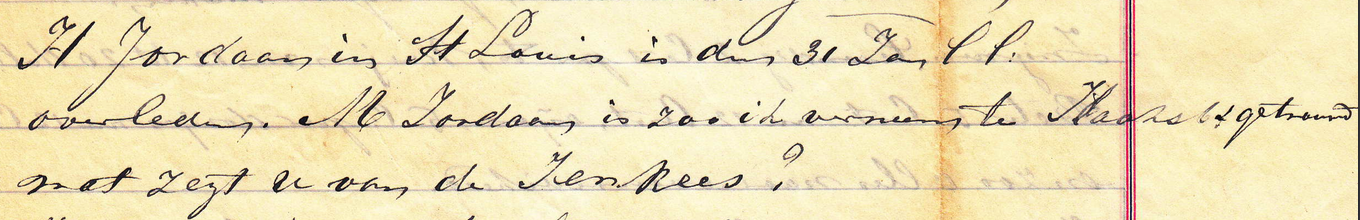 H Jordaan in St Louis is den 31 Jan l l.
overleden. M Jordaan is zoo ik verneem te getrouwd
wat zegt u van de Jenkees?